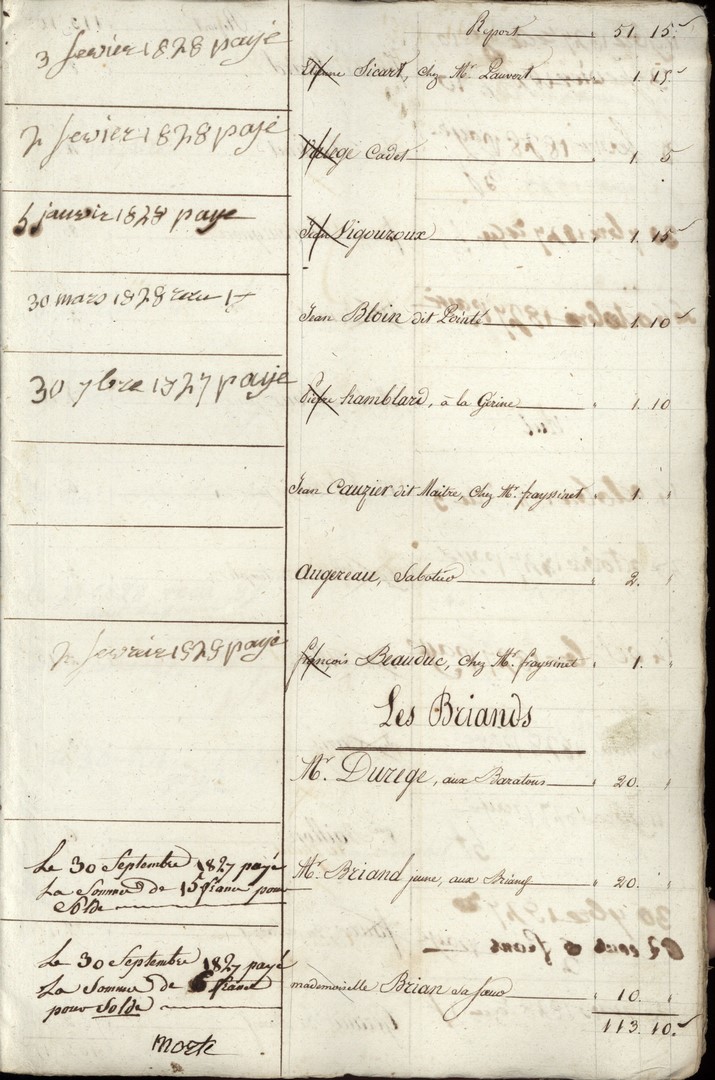 Report 51. 15.
3 fevrier 1828 payé
Etienne Sicart, chez Mr. Lauvert 1. 15
2 fevier 1828 payé
Cadet 1. 5
5 janvir 1828 payé
Jean Vigouroux 1. 15
30 mars 1828 recu 1
Jean Bloin dit Pointé 1. 10
30 7bre 1827 payé
Pierre hamblard, à la Gérine 1. 10
Jean Cauzier dit Maitre, chez Mr. frayssinet 1. "
Augereau, Sabotier 2. "
2 fevrier 1829 payé
françois Beauduc, chez Mr. frayssinet 1. "
Les Briands
Mr. Durege, aux Baratous 20. "
Le 30 Septembre 1827 payé
La Somme de 15 franc pour
Solde
Mr. Briand jeune, aux Briands 20. "
Le 30 Septembre 1827 payé
La Somme de 6 franc
pour Solde
mademoiselle Brian sa sœur 10. "
113. 10.
Morte